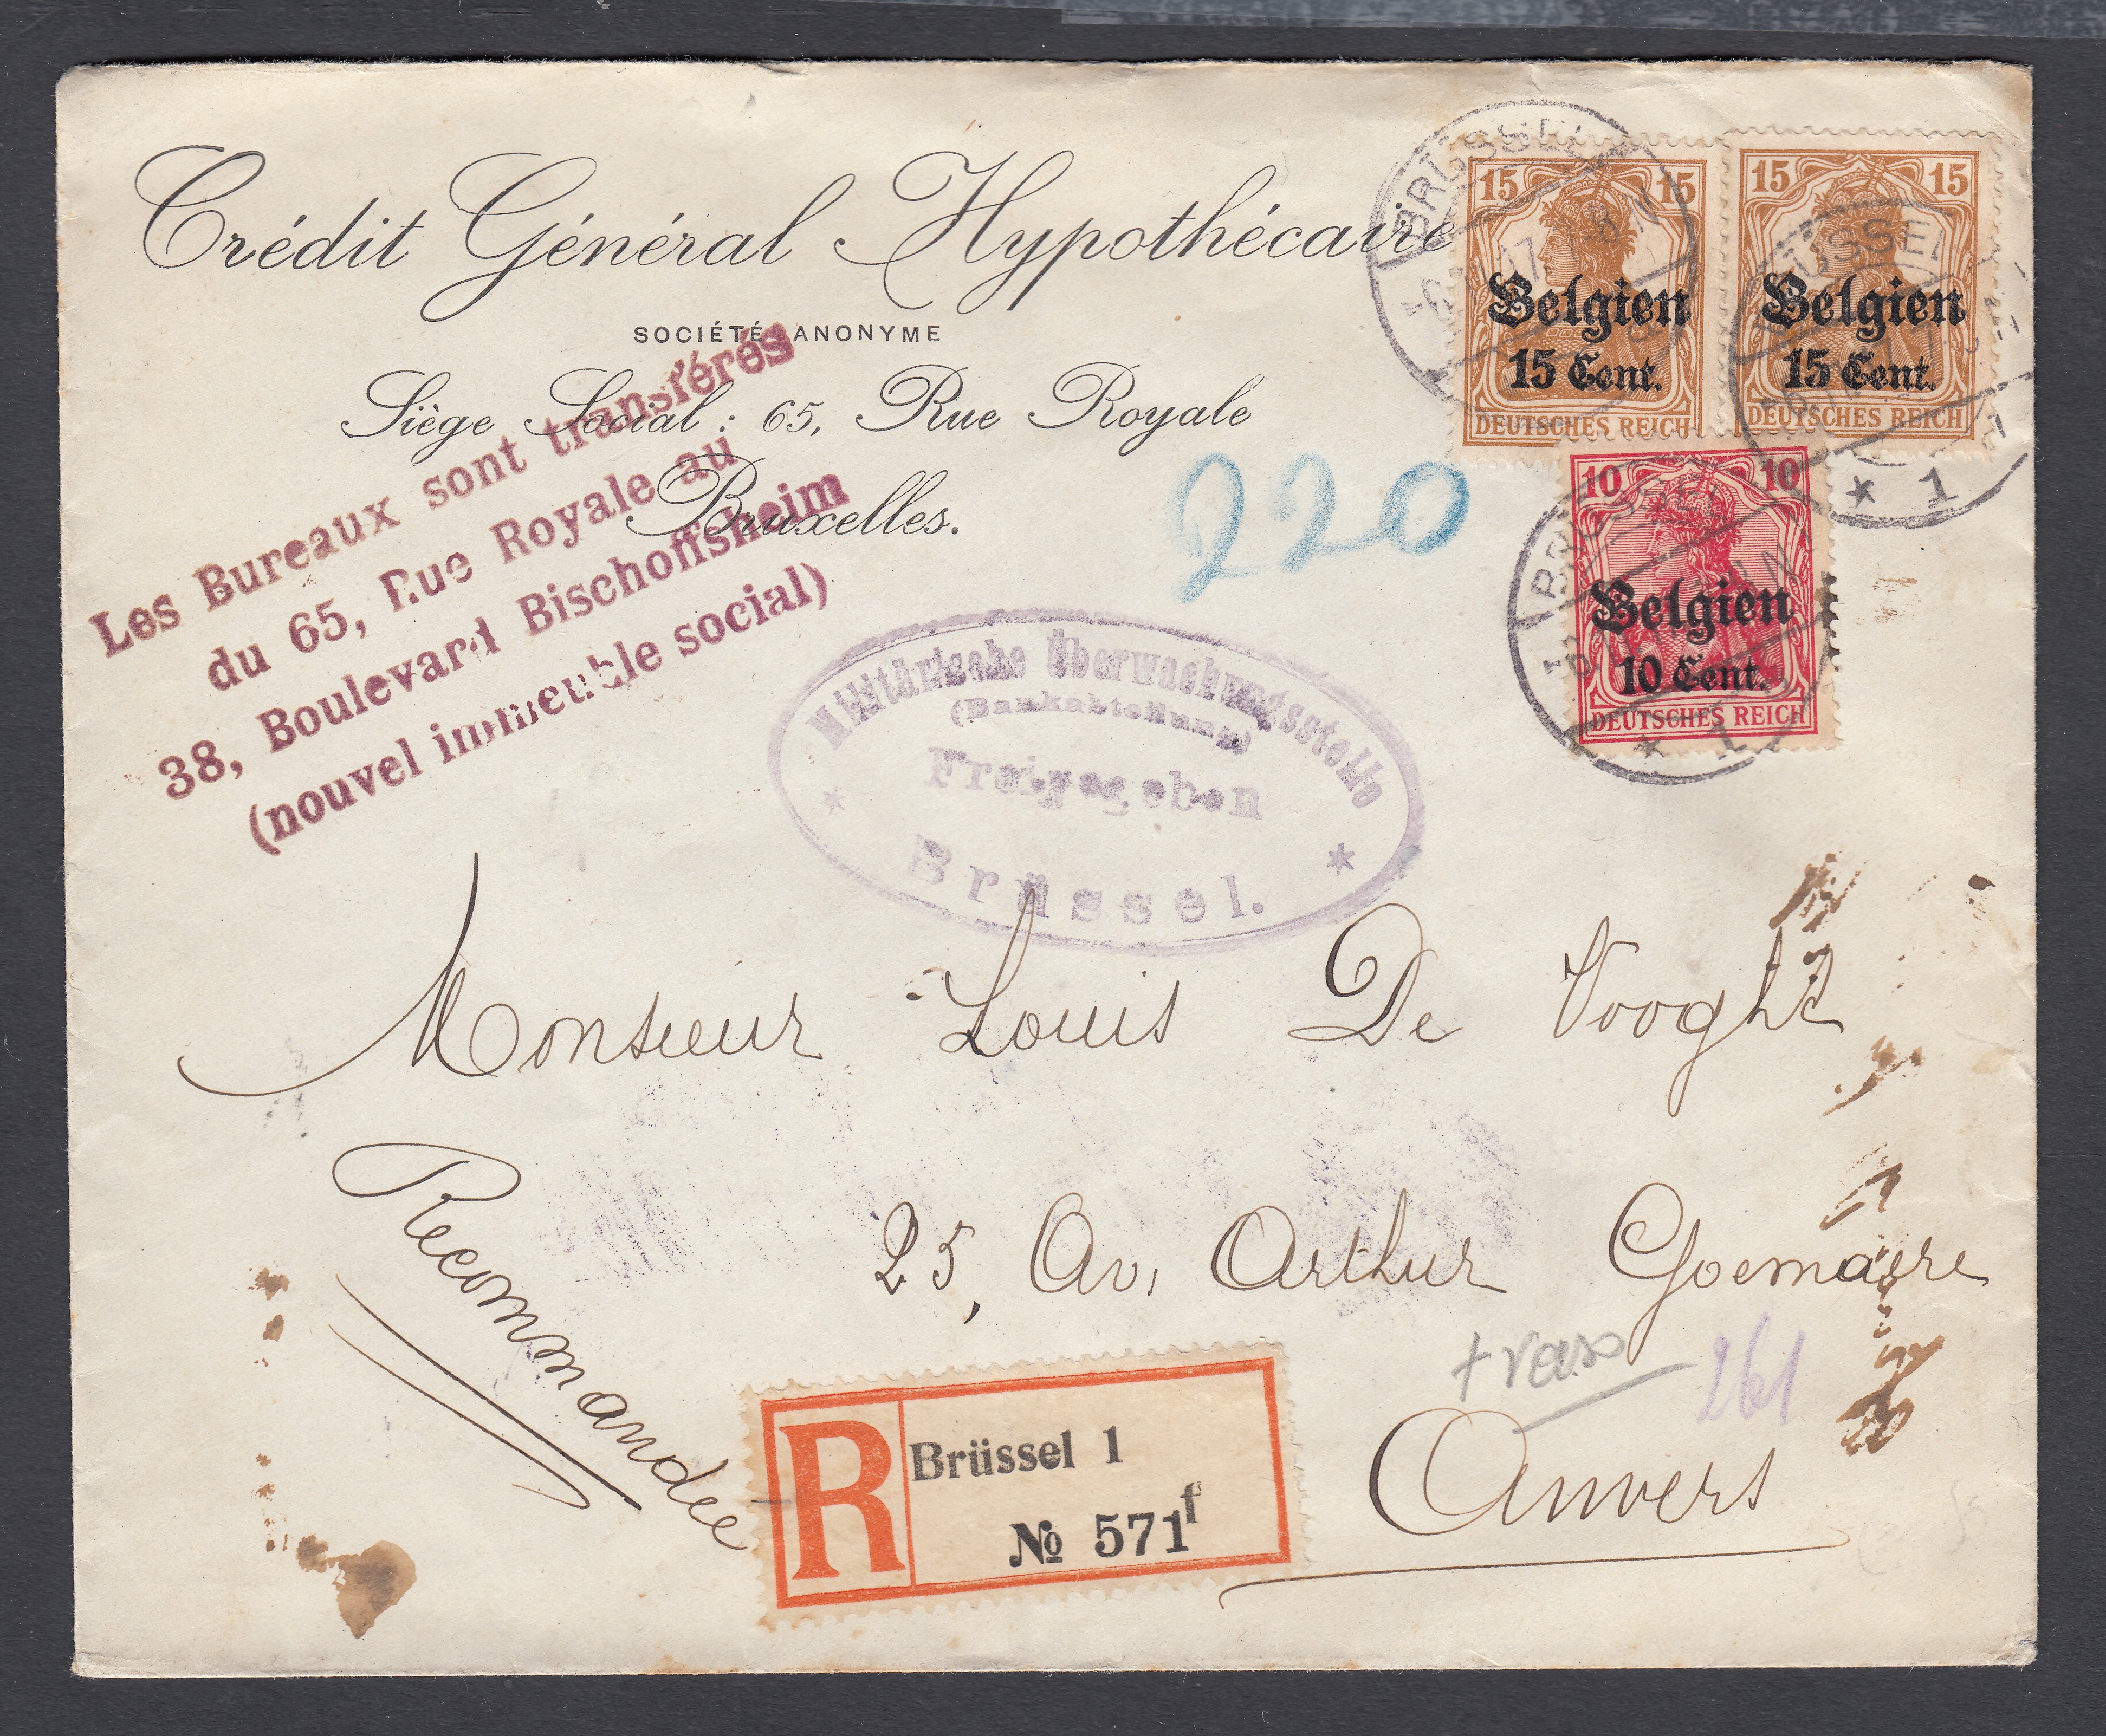 Crédit Général Hypothécaire
SOCIÉTÉ ANONYME
Siège Social : 65, Rue Royale
Bruxelles.
Les Bureaux sont transférés
du 65, Rue Royale au
38, Boulevard Bischoffsheim
(nouvel immeuble social)
220
BRÜSSEL
15 15
Belgien
15 Cent.
DEUTSCHES REICH
BRÜSSEL
* 1
15 15
Belgien
15 Cent.
DEUTSCHES REICH
BRÜSSEL
* 1
10 10
Belgien
10 Cent.
DEUTSCHES REICH
Militärische Überwachungsstelle
(Bankabteilung)
Freigegeben
* Brüssel. *
Monsieur Louis De Vooght
25, Av. Arthur Goemaere
261
Anvers
Recommandée
R Brüssel 1
№ 571 f